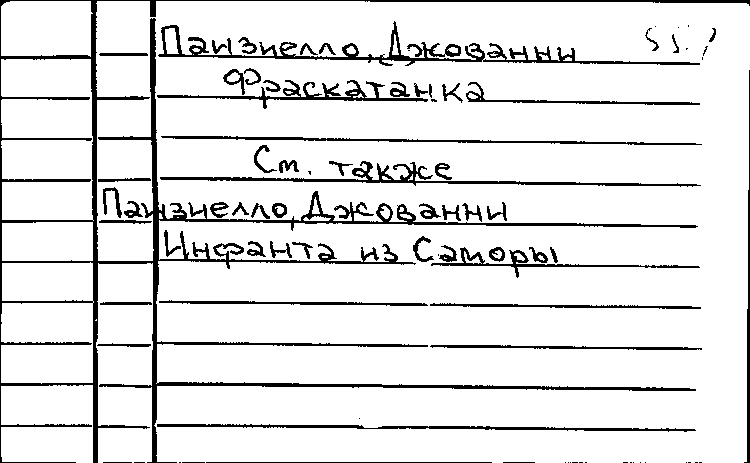 Паизиелло, Джованни
Фраскатанка
См. также
Паизиелло, Джованни
Инфанта из Саморы